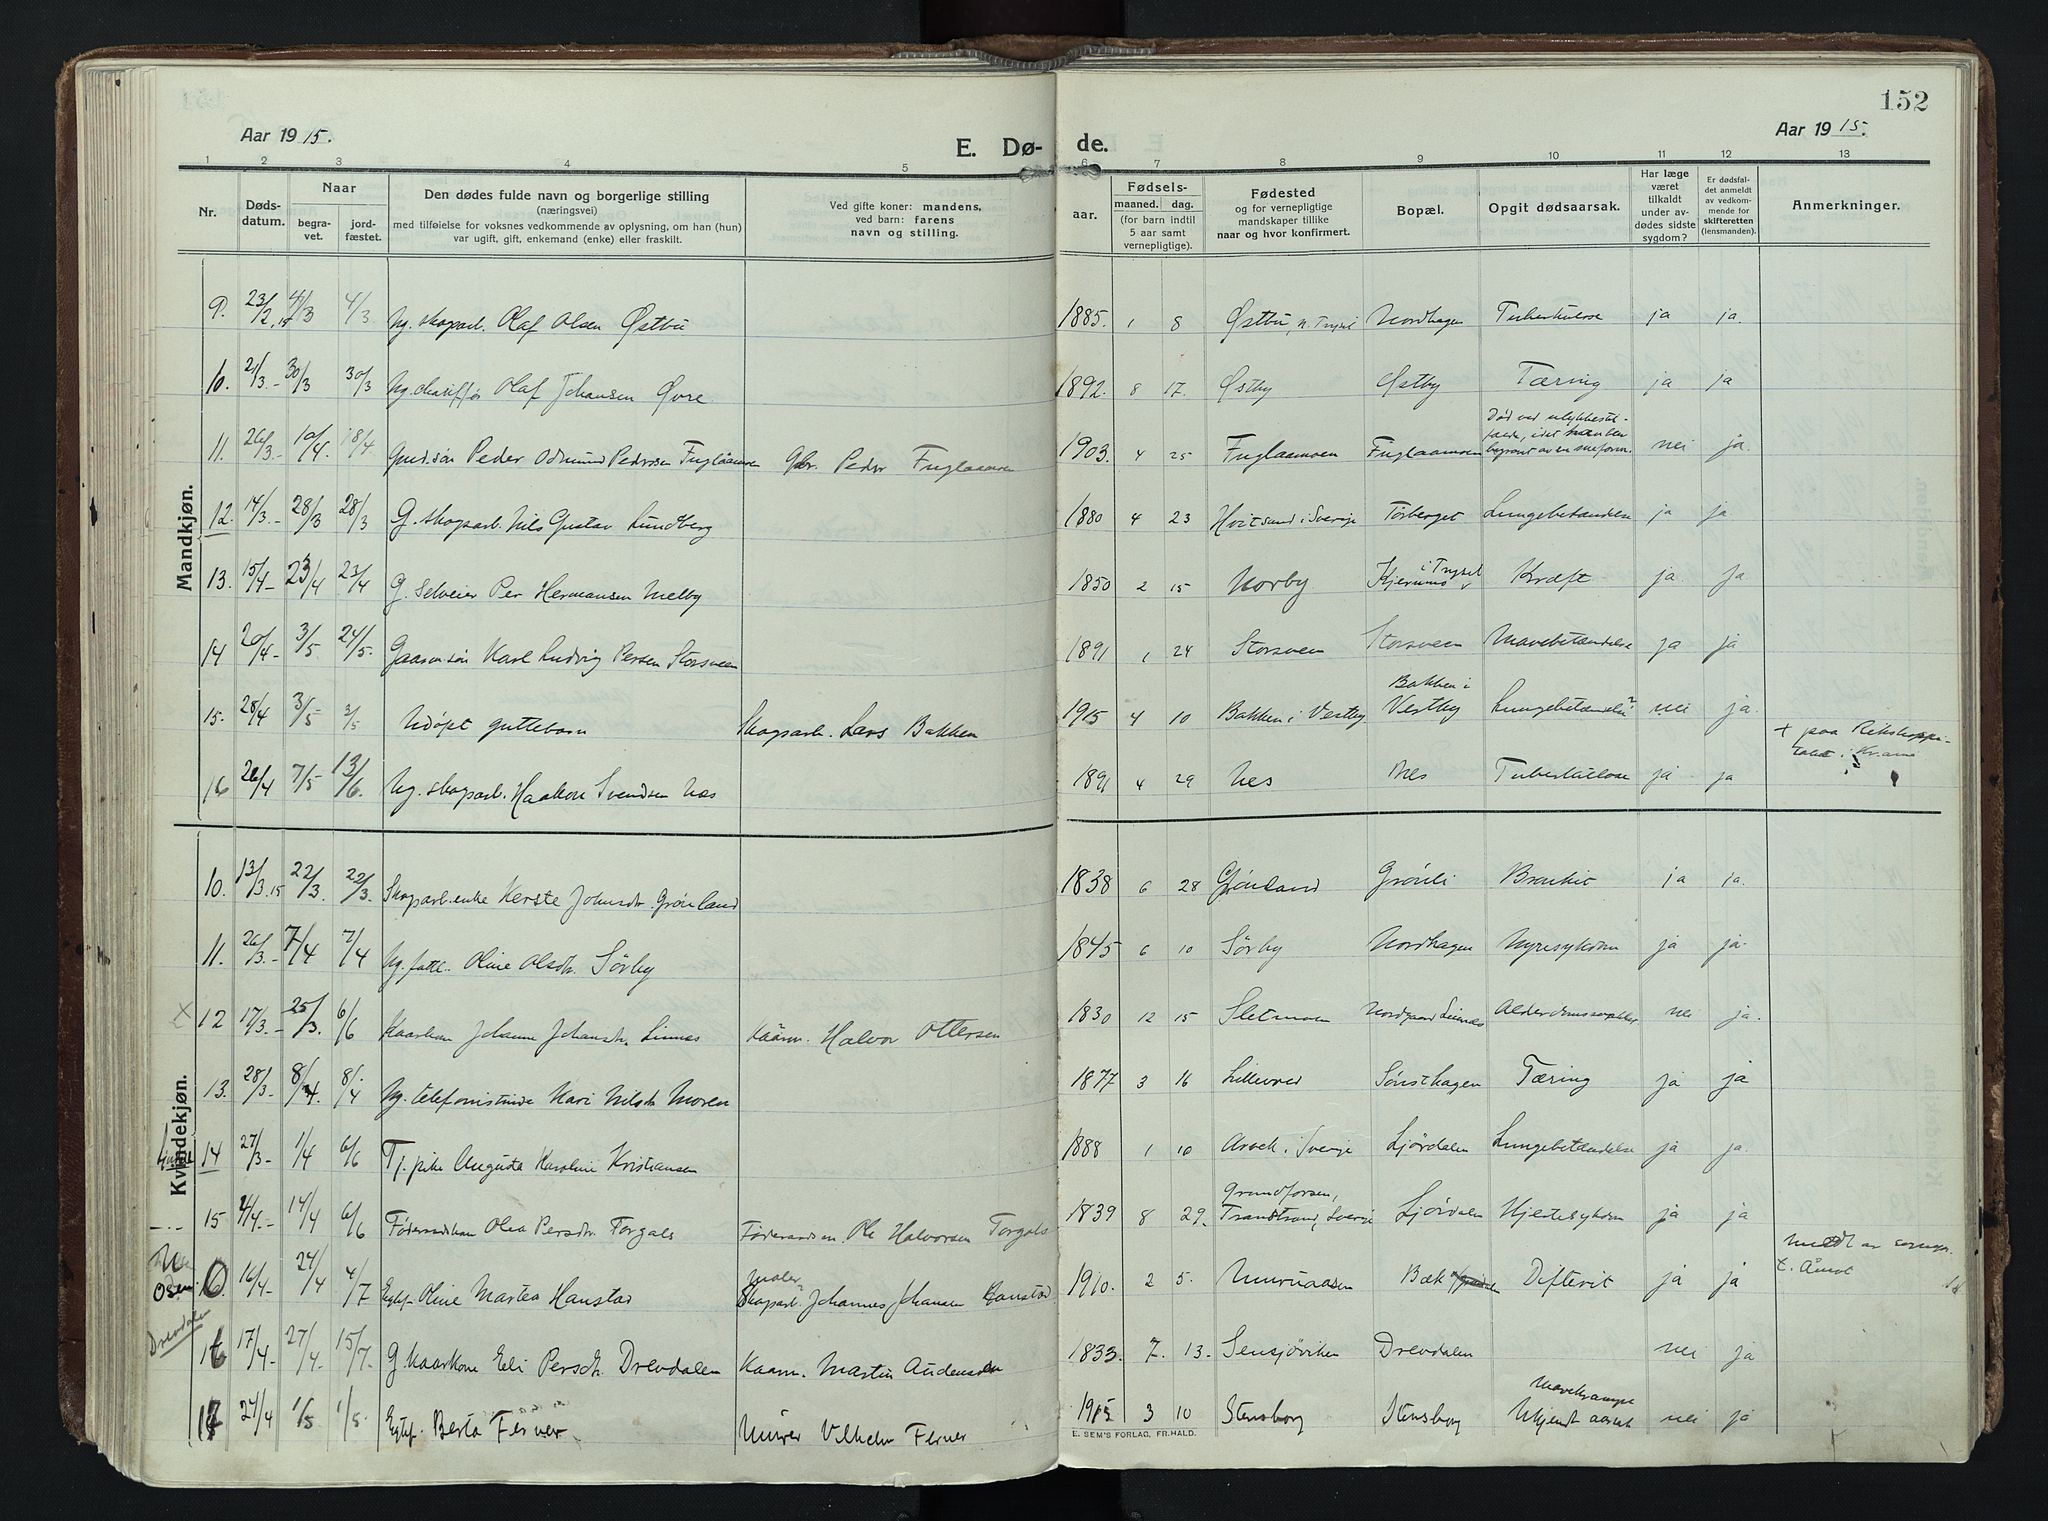 152
Aar 1915.
E. Dø- de.
Aar 1915.
1 2 3 4 5 6 7 8 9 10 11 12 13
Nr.
Døds-
datum.
Naar
begra-
vet.
jord-
fæstet.
Den dødes fulde navn og borgerlige stilling
(næringsvei)
med tilføielse for voksnes vedkommende av oplysning, om han (hun)
var ugift, gift, enkemand (enke) eller fraskilt.
Ved gifte koner: mandens,
ved barn: farens
navn og stilling.
aar.
Fødsels-
maaned. dag.
(for barn indtil
5 aar samt
vernepligtige).
Fødested
og for vernepligtige
mandskaper tillike
naar og hvor konfirmert.
Bopæl.
Opgit dødsaarsak.
Har læge
været
tilkaldt
under av-
dødes sidste
sygdom?
Er dødsfal-
det anmeldt
av vedkom-
mende for
skifteretten
(lensmanden).
Anmerkninger.
Mandkjøn.
9. 23/2.15 4/3 4/3 Ug. skogarb. Olaf Olsen Østbu 1885. 1 8 Østbu, n. Trysil Nordhagen Tuberkulose ja ja.
10. 21/3.- 30/3 30/3 Ug. Olaf Johansen Øvre 1892. 8 17. Østby Østby Tæring ja ja
11. 26/3.- 10/4. 18/4 Peder Odmund Pedersen Fuglaamoen Gbr. Peder Fuglaamoen 1903. 4 25 Fuglaamoen Fuglaamoen Død ved ulykkestil-
fælde, idet han blev
begravet av en snefonn. nei ja.
12. 14/3.- 28/3 28/3 G. skogsarb. Nils Gustav Lundberg 1880 4 23 Hvitsand i Sverige Torberget Lungebetændelse ja ja
13. 15/4- 23/4 23/4 G. Selveier Per Hermansen Melby 1850 2 15 Norby i Trysil Kræft ja ja.
14 20/4- 3/5. 24/5. Gaardsøn Karl Ludvig Persen Storsveen 1891 1 24 Storsveen Storsveen Mavebetændelse ja ja
15. 28/4 3/5- 3/5 Udøpt guttebarn Skogsarb. Lars Bakken 1915 4 10 Bakken i Vestby Bakken i
Vestby Lungebetændelse? nei ja.
16 26/4 7/5- 13/6. Ug. skogsarb. Haakon Svendsen Næs 1891 4 29 Nes Nes Tuberkulose ja ja + paa Rikshospi-
talet i Kr.ania
Kvindekjøn.
10. 13/3.15 22/3. 22/3. Skogarb.enke Kerste Johnsdtr. Grønland 1838 6 28 Grönland Grönli Bronkit ja ja.
11. 26/3.- 7/4 7/4 Ug. fatt. Oline Olsdtr. Sørby 1845 6 10 Sørby Nordhagen Nyresykdom ja ja.
12 17/3.- 25/3. 6/6 Kaarkone Johanne Johansdtr. Linnes Kaarm. Halvor Ottersen 1830 12 15 Sletmoen Nordgaard Linnes nei ja.
13. 28/3- 8/4. 8/4 Ug. telefonistinde Kari Nilsdtr Moren 1877 3 16 Lillevred Sønsthagen Tæring ja ja
14 27/3- 1/4 6/6 Tj. pike Augusta Karoline Kristiansen 1888 1 10 Arvek i Sverige Ljørdalen Lungebetændelse ja ja.
15 4/4.- 14/4 6/6 Føderaadskone Olea Persdtr. Torgals Føderaadsm. Ole Halvorsen Torgals 1839 8 29. Grundforsen,
Transtrand, Sverige Ljørdalen Hjertesykdom ja ja
Osen 16/4- 24/4 4/7 Egtef. Oline Martea Hanstad maler
Skogarb. Johannes Johansen Hanstad 1910. 2 5. Ulvruaasen Difterit ja ja meldt av sognepr.
t. Åmot
Drevdalen
16 17/4- 27/4. 15/7. G. Kaarkone Eli Persdtr. Drevdalen Kaarm. Martin Audensen 1833. 7. 13. Sensjöviken Drevdalen nei ja
17 24/4 1/5 1/5. Egtef. Berta Ferner Murer Vilhelm Ferner 1915 3 10 Stensborg Stensborg Mavekrampe
Ukjendt aarsak nei ja
E. SEM'S FORLAG, FR.HALD.